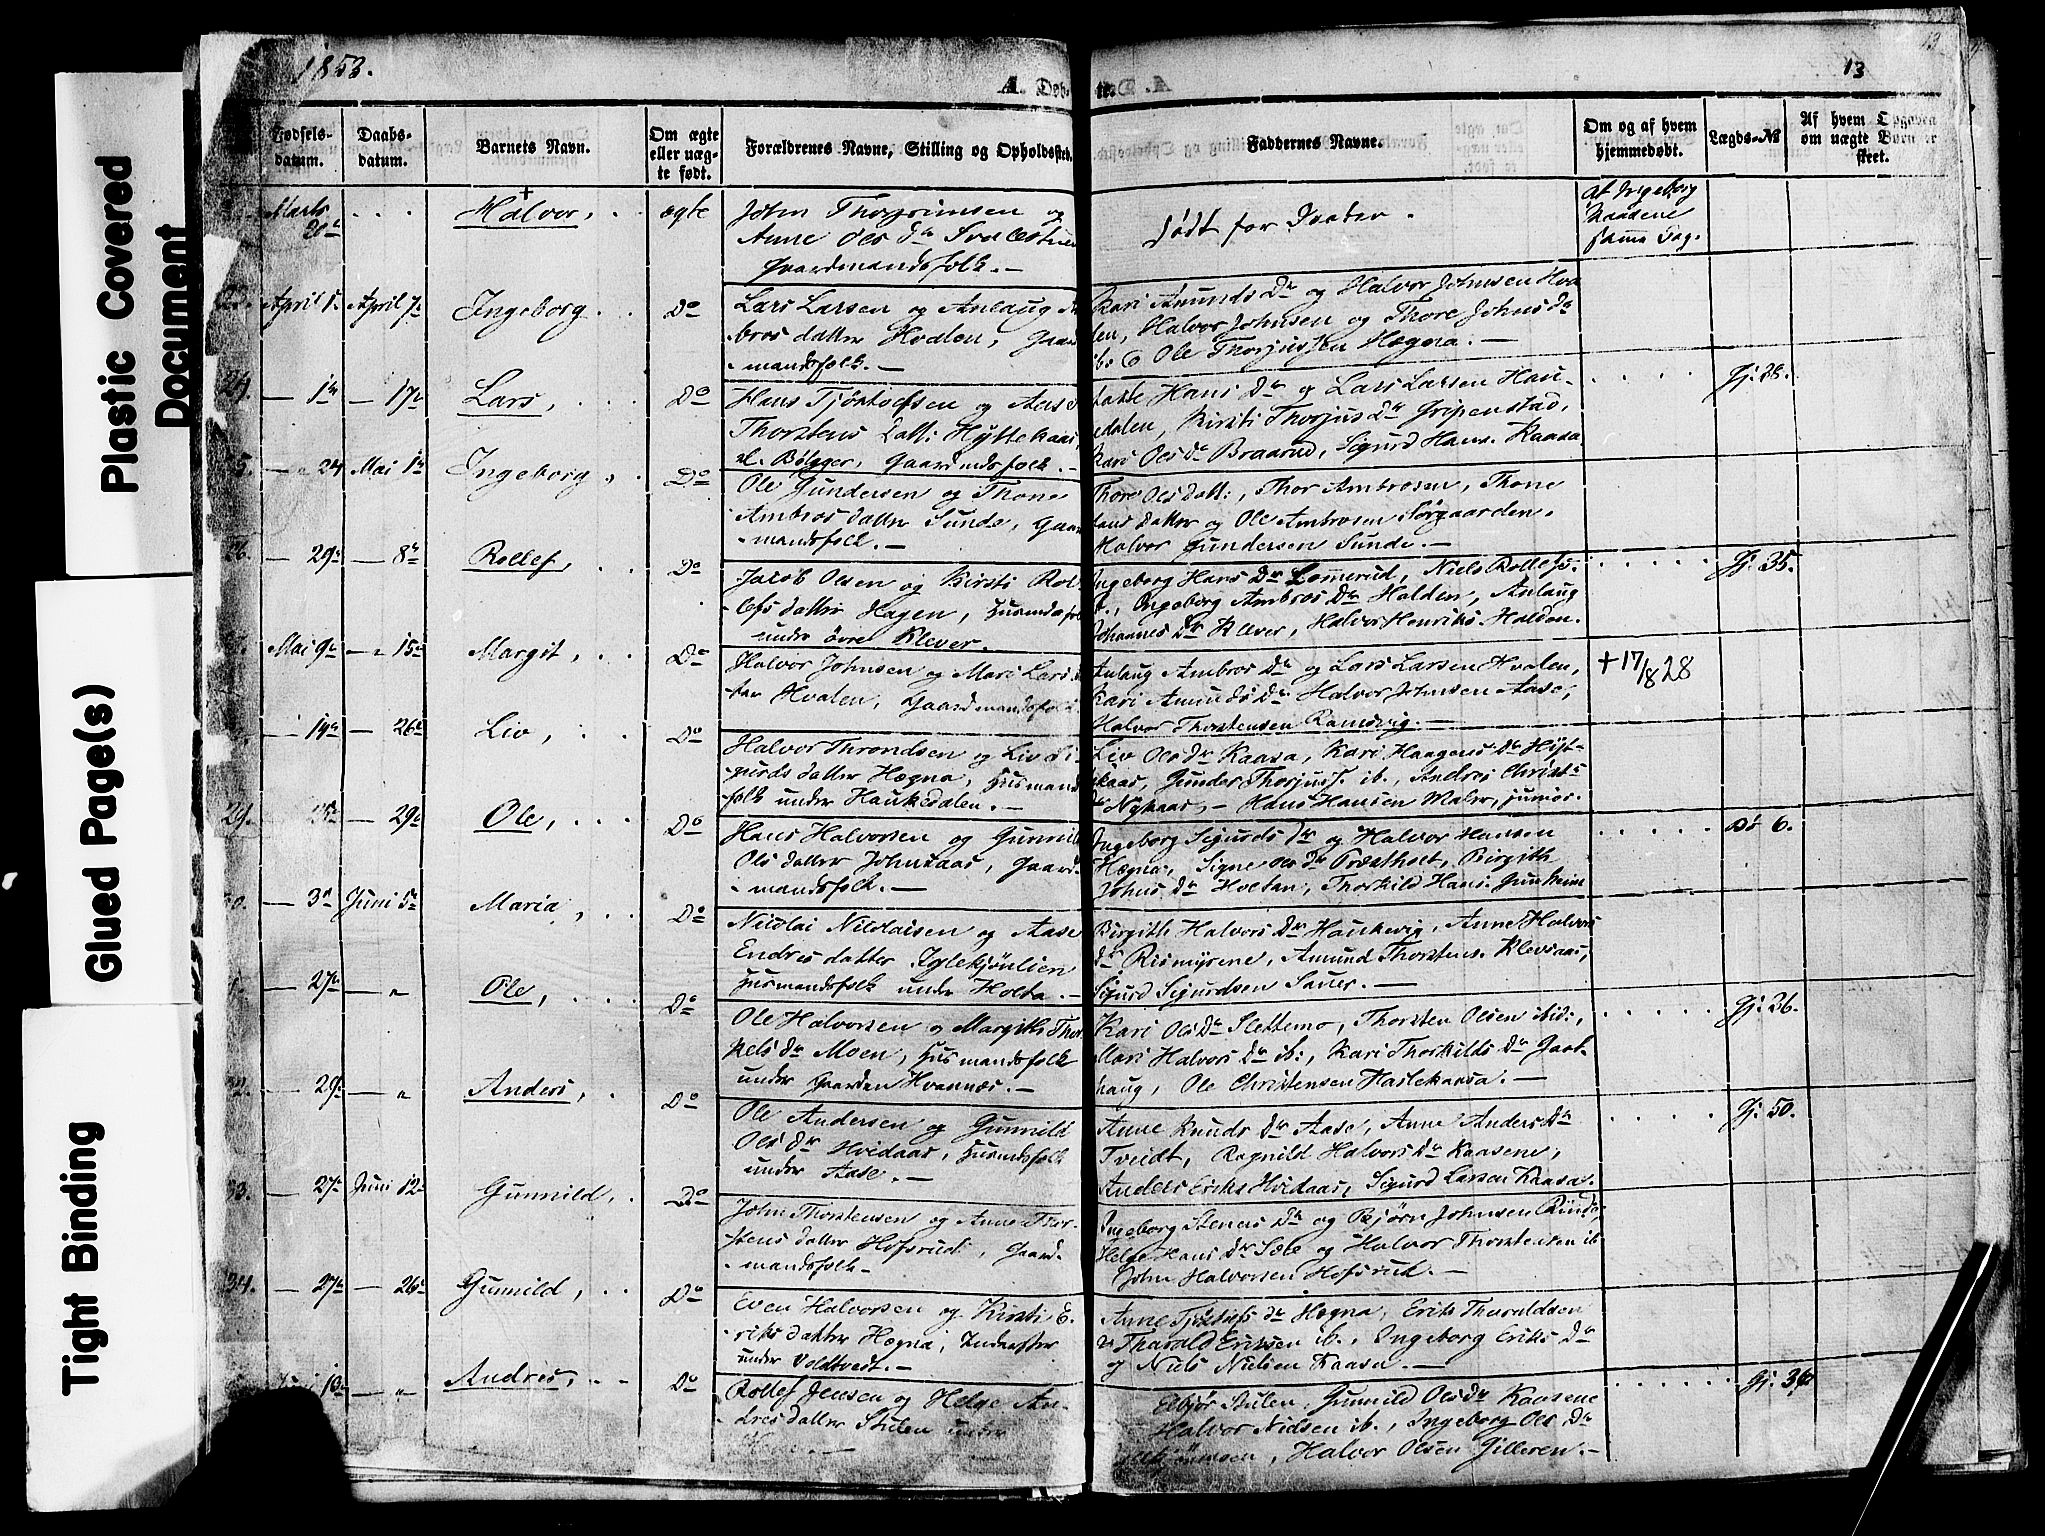 Plastic Covered
Document
Glued Page(s)
Tight Binding
1853.
A. Døb
te.
13
Fødsels-
datum.
Daabs-
datum.
Barnets Navn.
Om ægte
eller uæg-
te født.
Forældrenes Navne, Stilling og Opholdssted.
Faddernes Navne.
Om og af hvem
hjemmedøbt.
Lægds-No
Af hvem Opgaven
om uægte Barn er
skeet.
Marts
Halvor,
ægte
John
og
Anne Ols Dr
Gaardmandsfolk.—
Dødt før Daaben.
af Ingeborg
Kaasene
samme Dag.
April
April 7
Ingeborg
Do
Lars Larsen og Anlaug
bros datter Hvalen, Gaar
mandsfolk.—
Kari Amunds Dr og Halvor Johnsen Hva
len, Halvor Johnsen og Thore Johns Dr
Ole Thorjussen Hægna.—
24.
— 1
— 17
Lars,
Do
Hans Tjøstolfsen og
Thorstens Datt: Hyttekaas
Bølgger, Gaardmdsfolk.—
Hans Dr og Lars Larsen Hau-
kedalen, Kirsti Thorjus Dr Gripenstad,
Kari Ols Dr Braarud, Sigurd Hans. Kaasa
Gj. 28.
— 24
Mai 1
Ingeborg,
Do
Ole Gundersen og Thone
Ambros datter Sunde, Gaar
mandsfolk.—
Thore Ols datt:, Thor Ambrosen, Thone
Hans datter og Ole Ambrosen Sørgaarden.
Halvor Gundersen Sunde.—
26.
— 29
— 8
Rollef,
Do
Jacob Olsen og Kirsti Rol
lefs datter Hagen, Husmdsfol
under øvre Klever.
Ingeborg Hans Dr Lommerud, Niels Rollefs:
Ingeborg Ambros Dr Halden, Anlaug
Johannes Dr Klever, Halvor Henriks. Halden.
Gj. 35.
Mai 9
— 15
Margit,
Do
Halvor Johnsen og Mari Lars
ter Hvalen, Gaardmandsfolk.
Anlaug Ambros Dr og Lars Larsen Hvalen,
Kari Amunds Dr Halvor Johnsen Aase,
Halvor Thorstensen Ramsvig.—
+17/8 28
— 14
— 26
Liv,
Do
Halvor Throndsen og Liv Si-
gurds datter Hægna, Husmand
folk under Haukedalen.—
Liv Ols Dr Kaasa, Kari Haagens Dr Høst-
kaas, Gunder Thorjuss. ib., Andrea Christs
Dr Nykaas,— Hans Hansen Maler, junior.
29.
— 29
Ole,
Do
Hans Halvorsen og Gunnild
Ols datter Johnsaas, Gaard-
mandsfolk.—
Ingeborg Sigurds Dr og Halvor Hansen
Hægna, Signe Ols Dr Præstholt, Birgith
Johns Dr Holtan, Thorkild Hans. Gunheim
Bø 6.
— 3
Juni 5
Maria,
Do
Nicolai Nicolaisen og Aase
Endres datter Iglekjønlien
Husmandsfolk under Holta.—
Birgith Halvors Dr Haukvig, Anne Halvors
Dr Rismyrene, Amund Thorstens. Klevsaas,
Sigurd Sigurdsen Sauer.—
— 27
— „
Ole,
Do
Ole Halvorsen og Margith Thor
kels Dr Moen, Husmandsfolk
under Gaarden Hvannæs.—
Kari Ols Dr Slettemo, Thorsten Olsen ibid:,
Mari Halvors Dr ib:, Kari Thorkilds Dr
haug, Ole Christensen Haslekaasa.—
Gj. 36.
— 29
— „
Anders,
Do
Ole Andersen og Gunnild
Ols Dr Hvidaas, Husmdsfolk
under Aase.—
Anne Knuds Dr Aase, Anne Anders Dr
Tveidt, Ragnild Halvors Dr Kaasene,
Anders Eriks Hvidaas, Sigurd Larsen Kaasa.
Gj. 50.
— 27
Juni 12
Gunnild,
Do
John Thorstensen og Anne Thor-
stens datter Hofsrud, Gaard-
mandsfolk—
Ingeborg Steners Dr og Bjørn Johnsen Rinde,
Helge Hans Dr Sæte og Halvor Thorstensen ib.
John Halvorsen Hofsrud.—
34.
— 27
— 26
Gunnild,
Do
Even Halvorsen og Kirsti E-
riks datter Hægna, Inderster
under Voldtvedt.—
Anne Tjøstolfs Dr Hægna, Erik Tharaldsen
Tharald Eriksen ib., Ingeborg Eriks Dr
og Niels Nielsen Kaasa.—
— „
Andres,
Do
Rollef Jensen og Helge An-
dres datter Stulen under
Elbjør Stulen, Gunnild Ols Dr Kaasene
Halvor Nielsen ib., Ingeborg Ols Dr
Halvor Olsen Gilleren.—